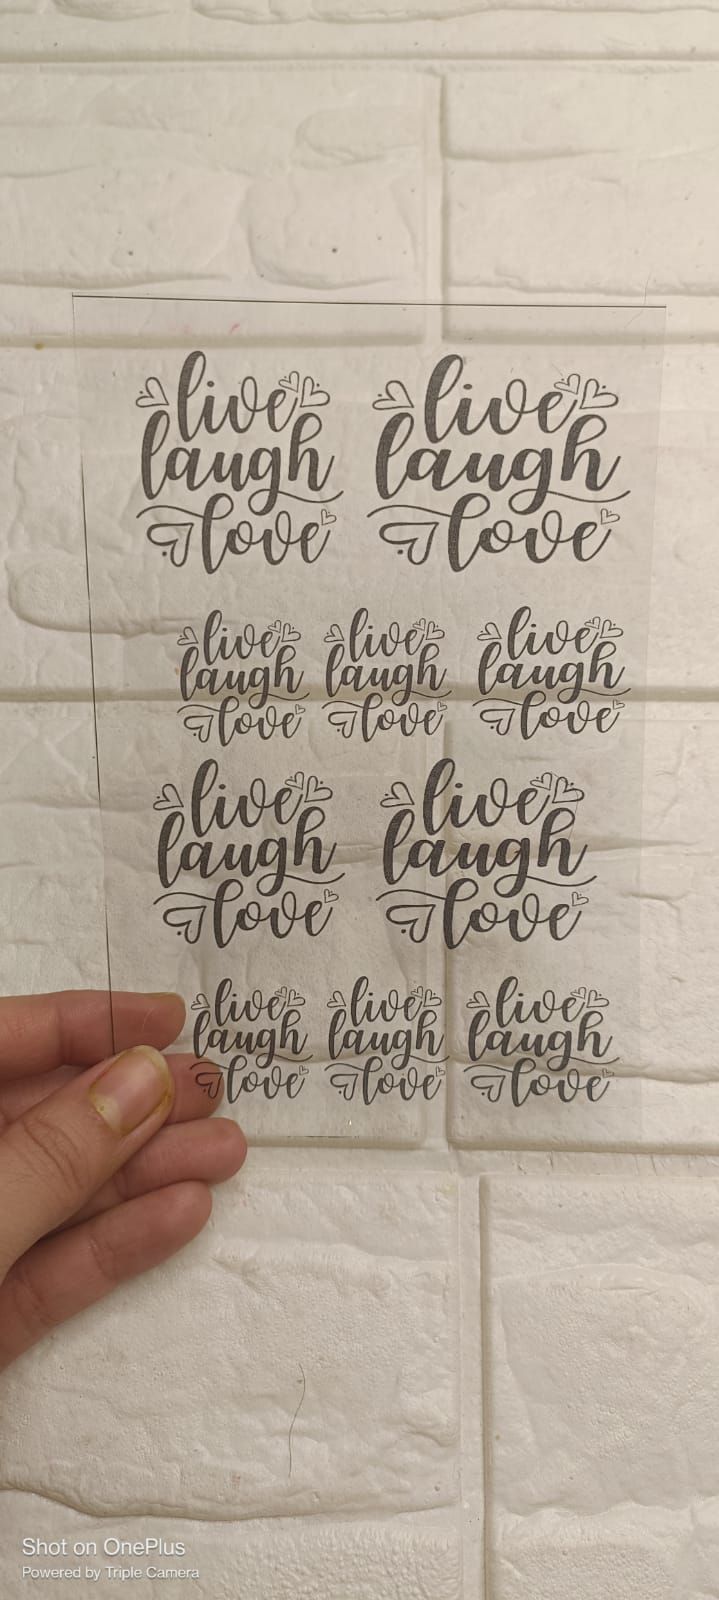 live live
laugh laugh
love love
live live live
laugh laugh laugh
love love love
live live
laugh laugh
love love
live live live
laugh laugh laugh
love love love
Shot on OnePlus
Powered by Triple Camera